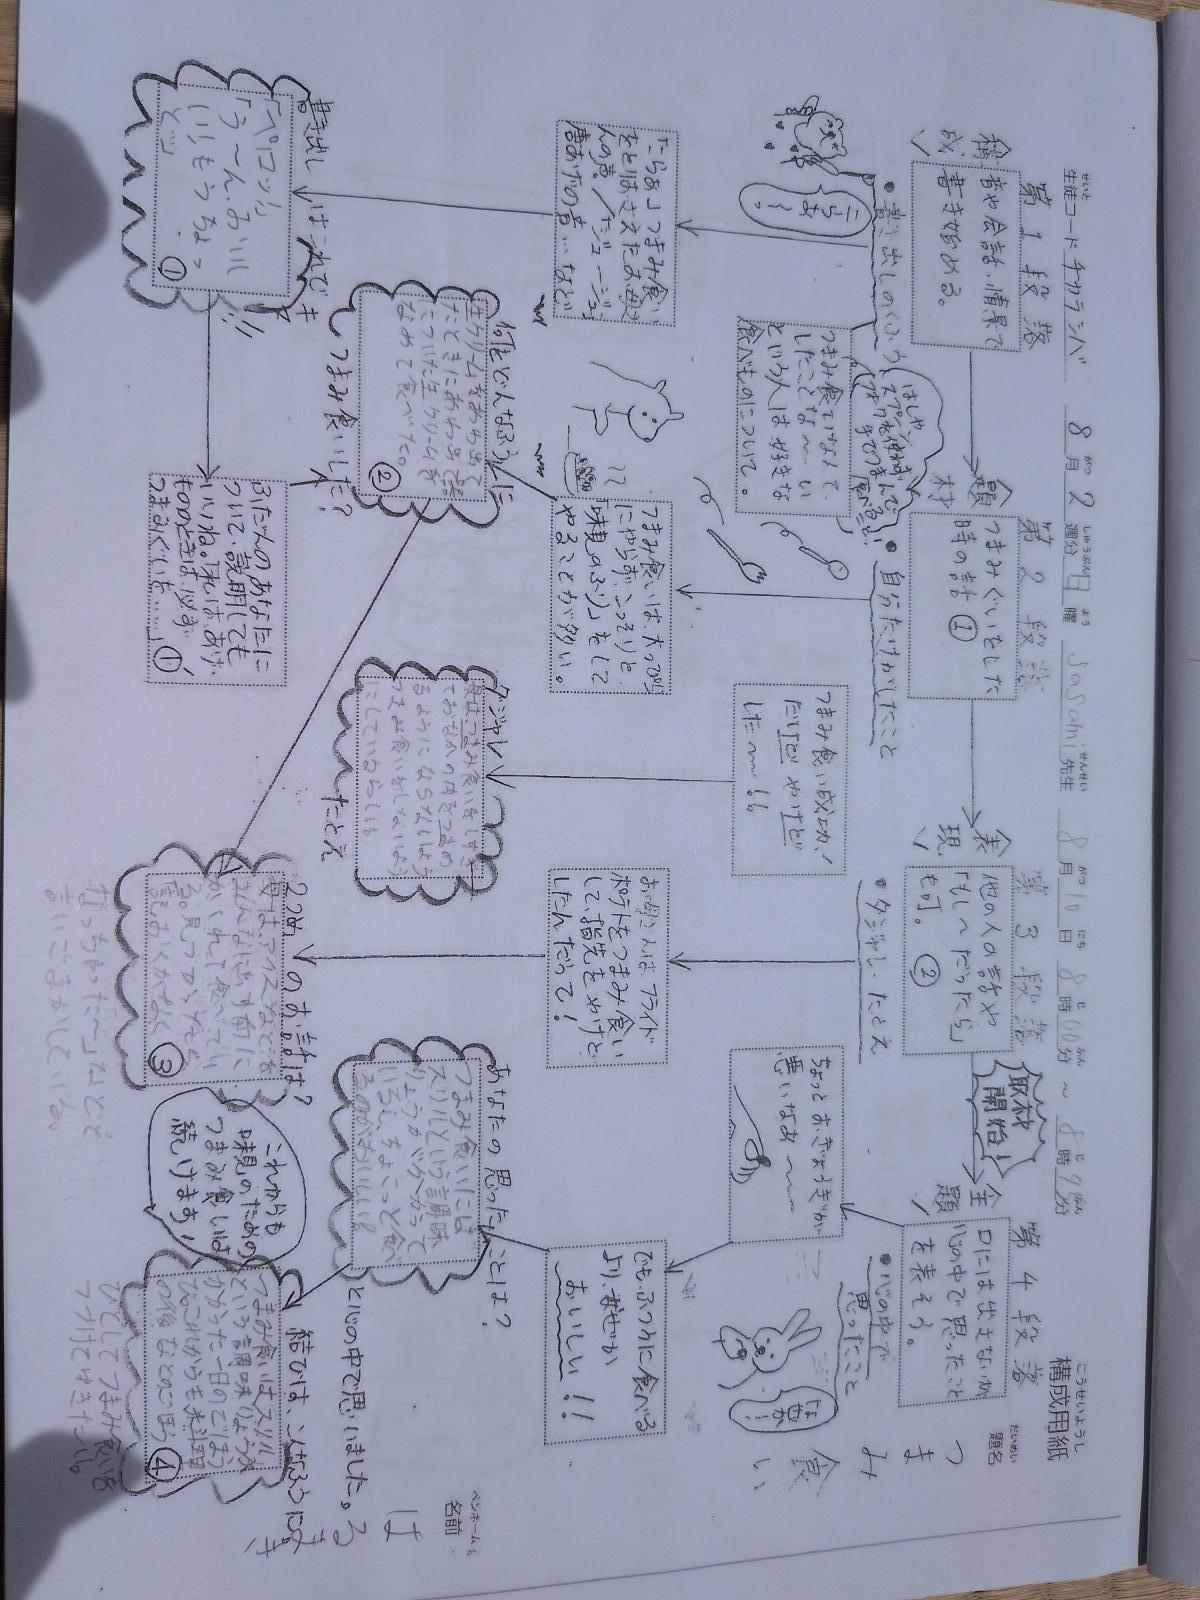 構成用紙
生徒コード チカラシバ 8月2週分 日曜 sasami先生 8月10日 8時00分 ~ 8時9分
題名
つまみ食い
ペンネーム
名前
はる
第1段落
構成
音や会話、情景で
書き始める。
・書き出しのくふう
こらぁ~っ
「こらぁ」つまみ食い
をとりおさえたお母さ
んの声/「ジュージュー」
唐あげの音…など
書き出しはこれでキマリ!!
「ペロッ」
「う~ん、おいし
い!もうちょっ
と」
①
ふだんのあなたに
ついて、説明しても
いいね。「これはあげ
もののときは、必ず
つまみぐいを……」①
つまみ食いなんて
したことな~い
という人は好きな
食べものについて。
はしや、
スプーン、
フォークを使わず、
手でつまんで
食べること!
第2段落
題材
つまみぐいをした
時の話①
・自分だけがしたこと
つまみ食いは大っぴら
にやらず、こっそりと、
「味見のふり」をして
やることが多い。
何をどんなふうに
つまみ食いした?
生クリームをあわ立て
たときにあわ立て器
についた生クリームを
なめて食べた。
②
第3段落
表現
他の人の話や
「もし~だったら」
も可。②
・ダジャレ・たとえ
つまみ食い成功!
だけどやけど
した~!!
ダジャレ
たとえ
母はつまみ食いをしすぎ
ておなかの肉をつまめ
るようにならないよう
つまみ食いをしないよう
にしているらしい。
お母さんはフライド
ポテトをつまみ食い
して、指先をやけど
したんだって!
2つめのお話は?
母は、アイスなどを
みんなに出す前に
かくれて食べてい
る。見つかっても
③
なっちゃった~」などと
言いごまかしている。
取材
開始!
第4段落
主題
口には出さないが
心の中で思ったこと
を表そう。
・心の中で
思ったこと
ちょっとおぎょうぎが
悪いなあ~~
でも、ふつうに食べる
より、なぜか
おいしい!!
あなたの思ったことは?
と心の中で思いました。
つまみ食いには
スリルという調味
りょうがかかって
いるし、ちょこっと食べ
るのがおいしい。
これからも
味見のための
つまみ食いは
続けます!
結びは、こんなふうに
つまみ食いはスリル
という調味りょうが
かかった一日のごほう
び。これからも料理
の後などのごほう
びとしてつまみ食いを
つづけてゆきたい。
④